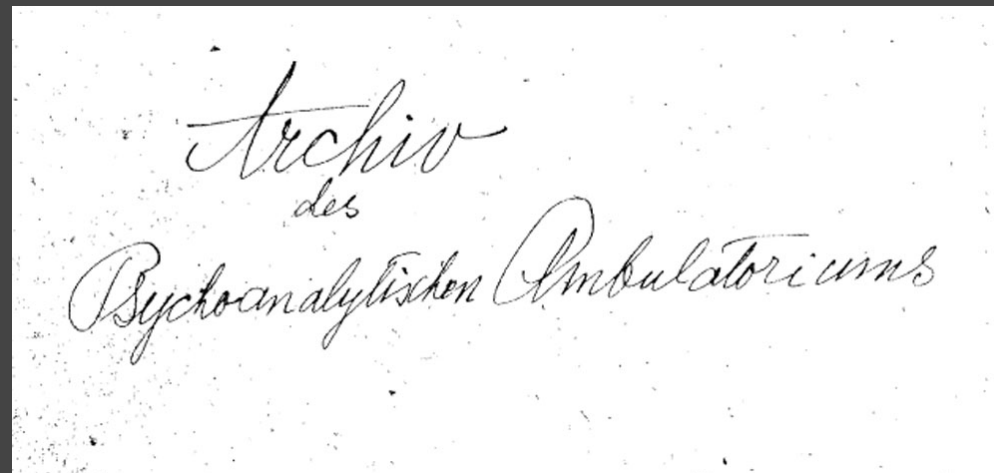 Archiv
des
Psychoanalytischen Ambulatoriums